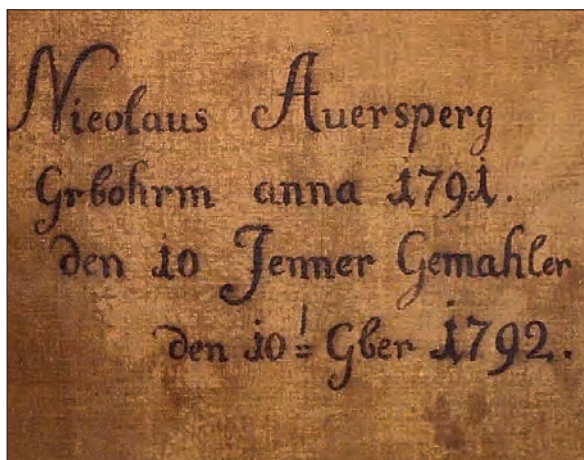 Nicolaus Auersperg
Grbohrm anna 1791.
den 10 Jenner Gemahler
den 10 Gber 1792.